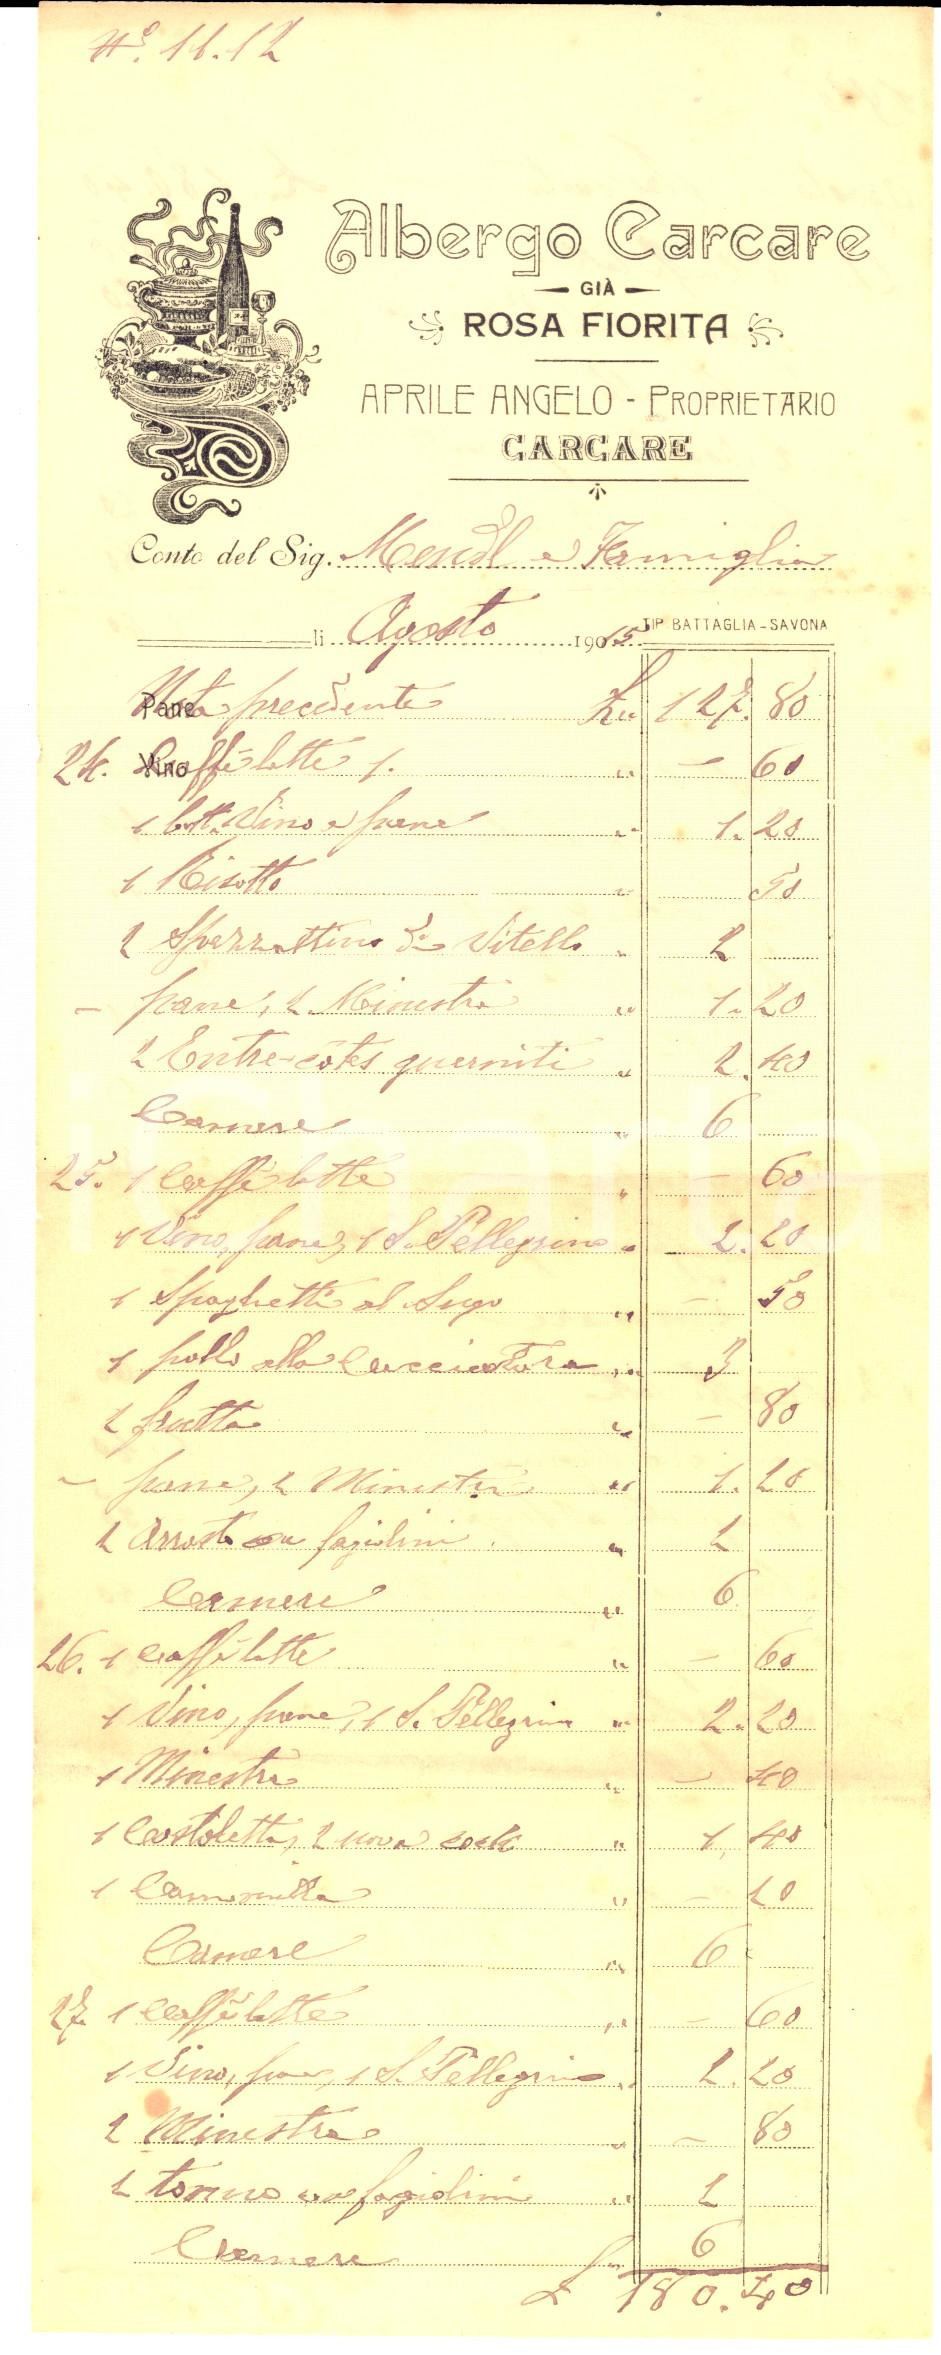 N°. 11.12
Albergo Carcare
GIÀ
ROSA FIORITA
APRILE ANGELO - PROPRIETARIO
CARCARE
Conto del Sig. Mendl e Famiglia
TIP. BATTAGLIA - SAVONA
li Agosto 1915
Pane Nota precedente Lit 127. 80
24. Vino Caffè latte 1. " - 60
1 bott. Vino e pane " 1. 20
1 Risotto " 50
2 Spezzattino di Vitello " 2
- pane, 2 Minestri " 1. 20
2 Entre-côtes guerniti " 2. 40
Camere " 6
25. 1 Caffè latte " - 60
1 Vino, pane, 1 S. Pellegrino " 2. 20
1 Spaghetti al Sugo " - 50
1 pollo alla Cacciatora " 3
2 frutta " - 80
- pane, 2 Minestre " 1. 20
2 Arrosto con fagiolini " 2
Camere " 6
26. 1 Caffè latte " - 60
1 Vino, pane, 1 S. Pellegrino " 2. 20
1 Minestra " - 40
1 Costoletta, 2 uova " 1. 40
1 Camomilla " - 20
Camere " 6
27. 1 Caffè latte " - 60
1 Vino, pane, 1 S. Pellegrino " 2. 20
2 Minestra " - 80
2 fagiolini " 2
Camere " 6
£ 180. 40